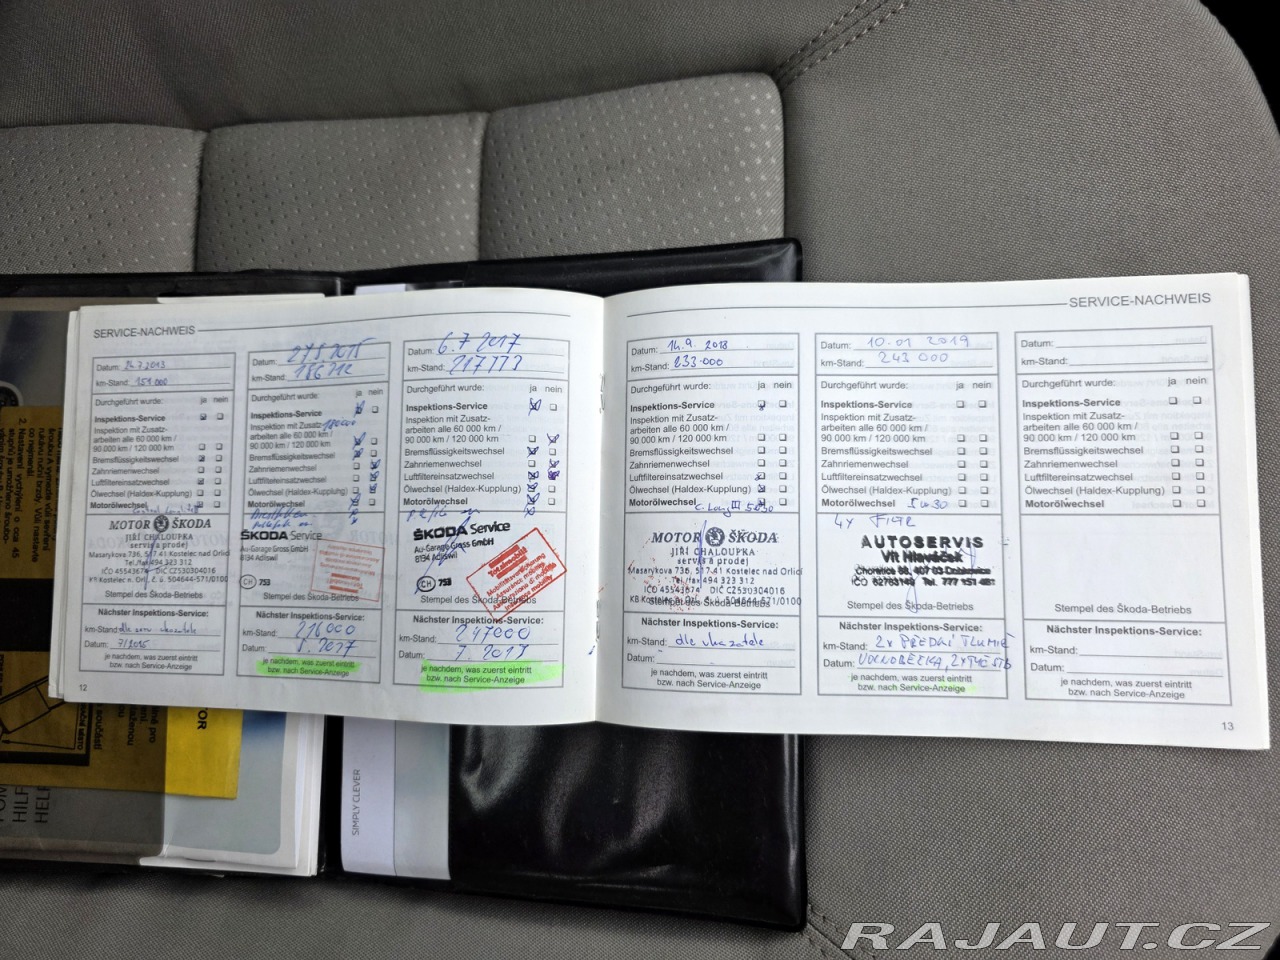 SERVICE-NACHWEIS
Datum: 24.7.2013
km-Stand: 151 000
Durchgeführt wurde: ja nein
Inspektions-Service
Inspektion mit Zusatz-
arbeiten alle 60 000 km /
90 000 km / 120 000 km
Bremsflüssigkeitswechsel
Zahnriemenwechsel
Luftfiltereinsatzwechsel
Ölwechsel (Haldex-Kupplung)
Motorölwechsel
MOTOR ŠKODA
JIŘÍ CHALOUPKA
servis a prodej
Masarykova 736, 517 41 Kostelec nad Orlicí
Tel./fax 494 323 312
IČO 45543674 DIČ CZ530304016
KB Kostelec n. Orl., č. ú. 504644-571/0100
Stempel des Škoda-Betriebs
Nächster Inspektions-Service:
km-Stand: dle serv. ukazatele
Datum: 7/2015
je nachdem, was zuerst eintritt
bzw. nach Service-Anzeige
12
Datum: 27.5 2015
km-Stand:
Durchgeführt wurde: ja nein
Inspektions-Service
Inspektion mit Zusatz-
arbeiten alle 60 000 km /
90 000 km / 120 000 km
Bremsflüssigkeitswechsel
Zahnriemenwechsel
Luftfiltereinsatzwechsel
Ölwechsel (Haldex-Kupplung)
Motorölwechsel
ŠKODA Service
Au-Garage Gross GmbH
8134 Adliswil
CH 753
Stempel des Škoda-Betriebs
Nächster Inspektions-Service:
km-Stand: 216000
Datum: 5.2017
je nachdem, was zuerst eintritt
bzw. nach Service-Anzeige
Datum: 6.7 2017
km-Stand: 217773
Durchgeführt wurde: ja nein
Inspektions-Service
Inspektion mit Zusatz-
arbeiten alle 60 000 km /
90 000 km / 120 000 km
Bremsflüssigkeitswechsel
Zahnriemenwechsel
Luftfiltereinsatzwechsel
Ölwechsel (Haldex-Kupplung)
Motorölwechsel
ŠKODA Service
Au-Garage Gross GmbH
8134 Adliswil
CH 753
Stempel des Škoda-Betriebs
Nächster Inspektions-Service:
km-Stand: 247000
Datum: 7.2019
je nachdem, was zuerst eintritt
bzw. nach Service-Anzeige
SERVICE-NACHWEIS
Datum: 14.9. 2018
km-Stand: 233.000
Durchgeführt wurde: ja nein
Inspektions-Service
Inspektion mit Zusatz-
arbeiten alle 60 000 km /
90 000 km / 120 000 km
Bremsflüssigkeitswechsel
Zahnriemenwechsel
Luftfiltereinsatzwechsel
Ölwechsel (Haldex-Kupplung)
Motorölwechsel
C. Long III 5W30
MOTOR ŠKODA
JIŘÍ CHALOUPKA
servis a prodej
Masarykova 736, 517 41 Kostelec nad Orlicí
Tel./fax 494 323 312
IČO 45543674 DIČ CZ530304016
KB Kostelec n. Orl., č. ú. 504644-571/0100
Stempel des Škoda-Betriebs
Nächster Inspektions-Service:
km-Stand: dle ukazatele
Datum:
je nachdem, was zuerst eintritt
bzw. nach Service-Anzeige
Datum: 10.01 2019
km-Stand: 243 000
Durchgeführt wurde: ja nein
Inspektions-Service
Inspektion mit Zusatz-
arbeiten alle 60 000 km /
90 000 km / 120 000 km
Bremsflüssigkeitswechsel
Zahnriemenwechsel
Luftfiltereinsatzwechsel
Ölwechsel (Haldex-Kupplung)
Motorölwechsel 5w30
4x FILTR
AUTOSERVIS
Vít Hlaváček
IČO 62783149 Tel. 777 151 481
Stempel des Škoda-Betriebs
Nächster Inspektions-Service:
km-Stand: 2x PŘEDNÍ TLUMIČ
Datum:
je nachdem, was zuerst eintritt
bzw. nach Service-Anzeige
Datum:
km-Stand:
Durchgeführt wurde: ja nein
Inspektions-Service
Inspektion mit Zusatz-
arbeiten alle 60 000 km /
90 000 km / 120 000 km
Bremsflüssigkeitswechsel
Zahnriemenwechsel
Luftfiltereinsatzwechsel
Ölwechsel (Haldex-Kupplung)
Motorölwechsel
Stempel des Škoda-Betriebs
Nächster Inspektions-Service:
km-Stand:
Datum:
je nachdem, was zuerst eintritt
bzw. nach Service-Anzeige
13
SIMPLY CLEVER
RAJAUT.CZ